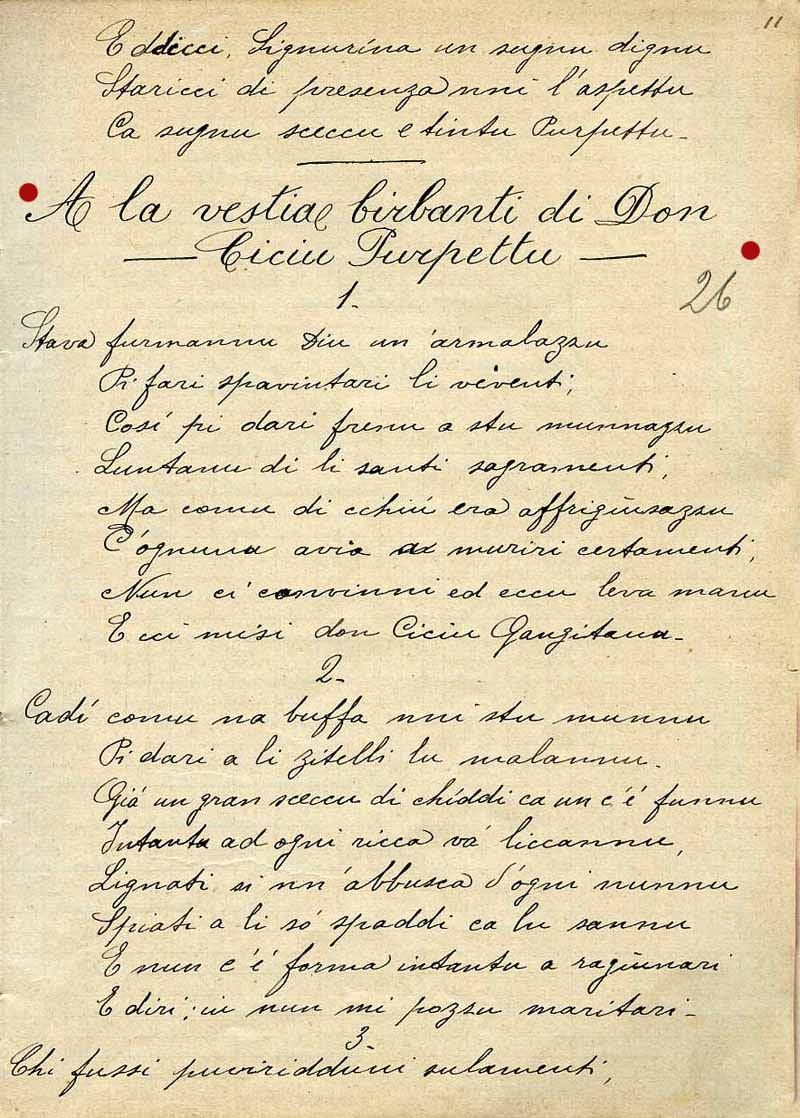 11
E ddicci, Signurína un sugnu dignu
Staricci di presenza nni l'aspettu
Ca sugnu sceccu e tintu Purpettu-
A la vestia birbanti di Don
Ciciu Purpettu
26
1-
Stava furmannu Diu un'armalazzu
Pi fari spavintari li viventi,
Cosí pi dari frenu a stu munnazzu
Luntanu di li santi sagramenti,
Ma comu di cchiú era affriggiusazzu
C'ognunu avia a muriri certamenti,
Nun ci convinni ed eccu leva manu
E cci misi don Ciciu Gangitanu-
2-
Cadí comu na buffa nni stu munnu
Pi dari a li zitelli lu malannu.
Giá un gran sceccu di chíddi ca un c'é funnu
Intantu ad ogni ricca vá liccannu,
Lignati si nn'abbusca d'ogni nunnu
Spiati a li só spaddi ca lu sannu
E nun c'é forma intantu a ragiunari
E diri: iu nun mi pozzu maritari-
3-
Chi fussi puviridduni sulamenti,